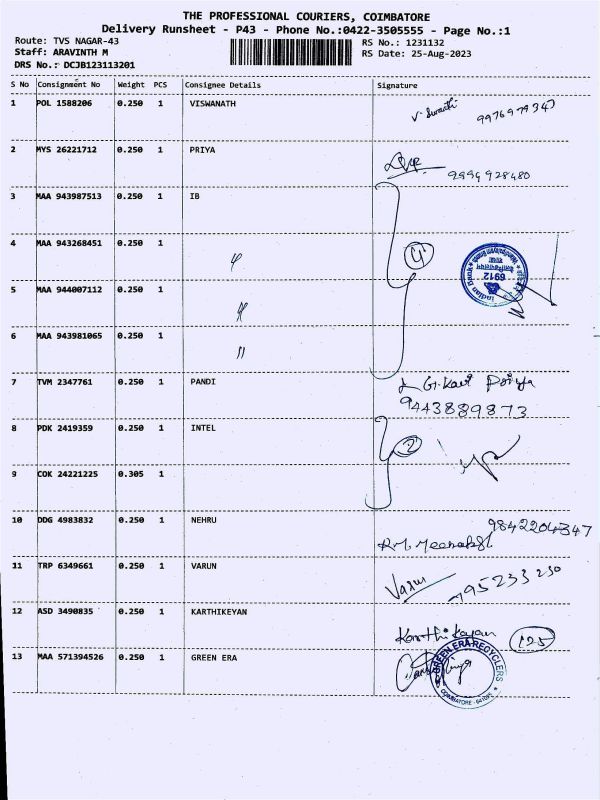 THE PROFESSIONAL COURIERS, COIMBATORE
Delivery Runsheet - P43 - Phone No.:0422-3505555 - Page No.:1
Route: TVS NAGAR-43 RS No.: 1231132
Staff: ARAVINTH M RS Date: 25-Aug-2023
DRS No.: DCJB123113201
S No Consignment No Weight PCS Consignee Details Signature
1 POL 1588206 0.250 1 VISWANATH
9976979347
2 MYS 26221712 0.250 1 PRIYA
9994928480
3 MAA 943987513 0.250 1 IB
4 MAA 943268451 0.250 1
4
6912
5 MAA 944007112 0.250 1
6 MAA 943981065 0.250 1
"
7 TVM 2347761 0.250 1 PANDI
9443889873
8 PDK 2419359 0.250 1 INTEL
2
9 COK 24221225 0.305 1
10 DDG 4983832 0.250 1 NEHRU
9842204347
11 TRP 6349661 0.250 1 VARUN
Varun
795233230
12 ASD 3490835 0.250 1 KARTHIKEYAN
Karthikayan 125
13 MAA 571394526 0.250 1 GREEN ERA
GREEN ERA RECYCLERS
COIMBATORE